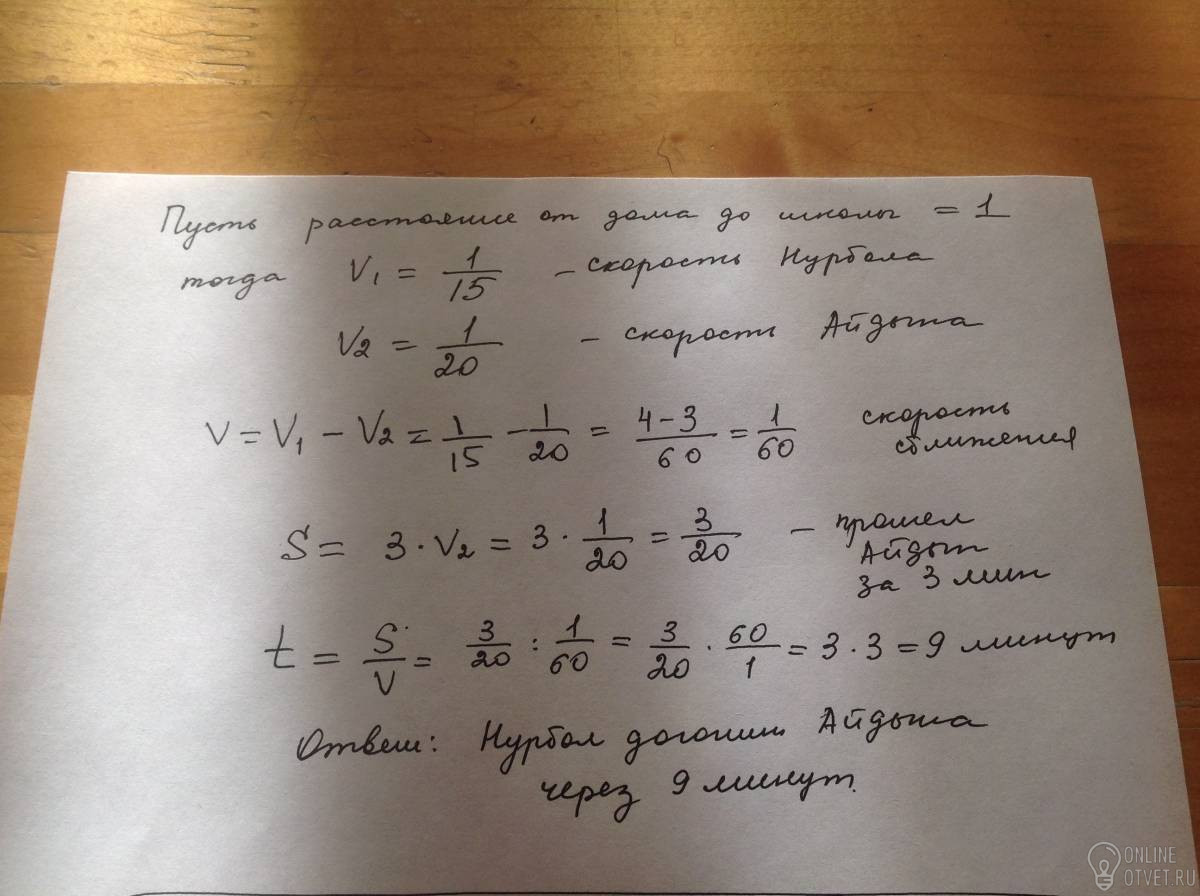 Пусть расстояние от дома до школы = 1
тогда V₁ = 1/15 – скорость Нурбола
V₂ = 1/20 – скорость Айдына
V = V₁ – V₂ = 1/15 – 1/20 = 4-3/60 = 1/60 скорость сближения
S = 3 · V₂ = 3 · 1/20 = 3/20 – прошел Айдын за 3 мин
t = S/V = 3/20 : 1/60 = 3/20 · 60/1 = 3 · 3 = 9 минут
Ответ: Нурбол догонит Айдына
через 9 минут.
ONLINE
OTVET.RU